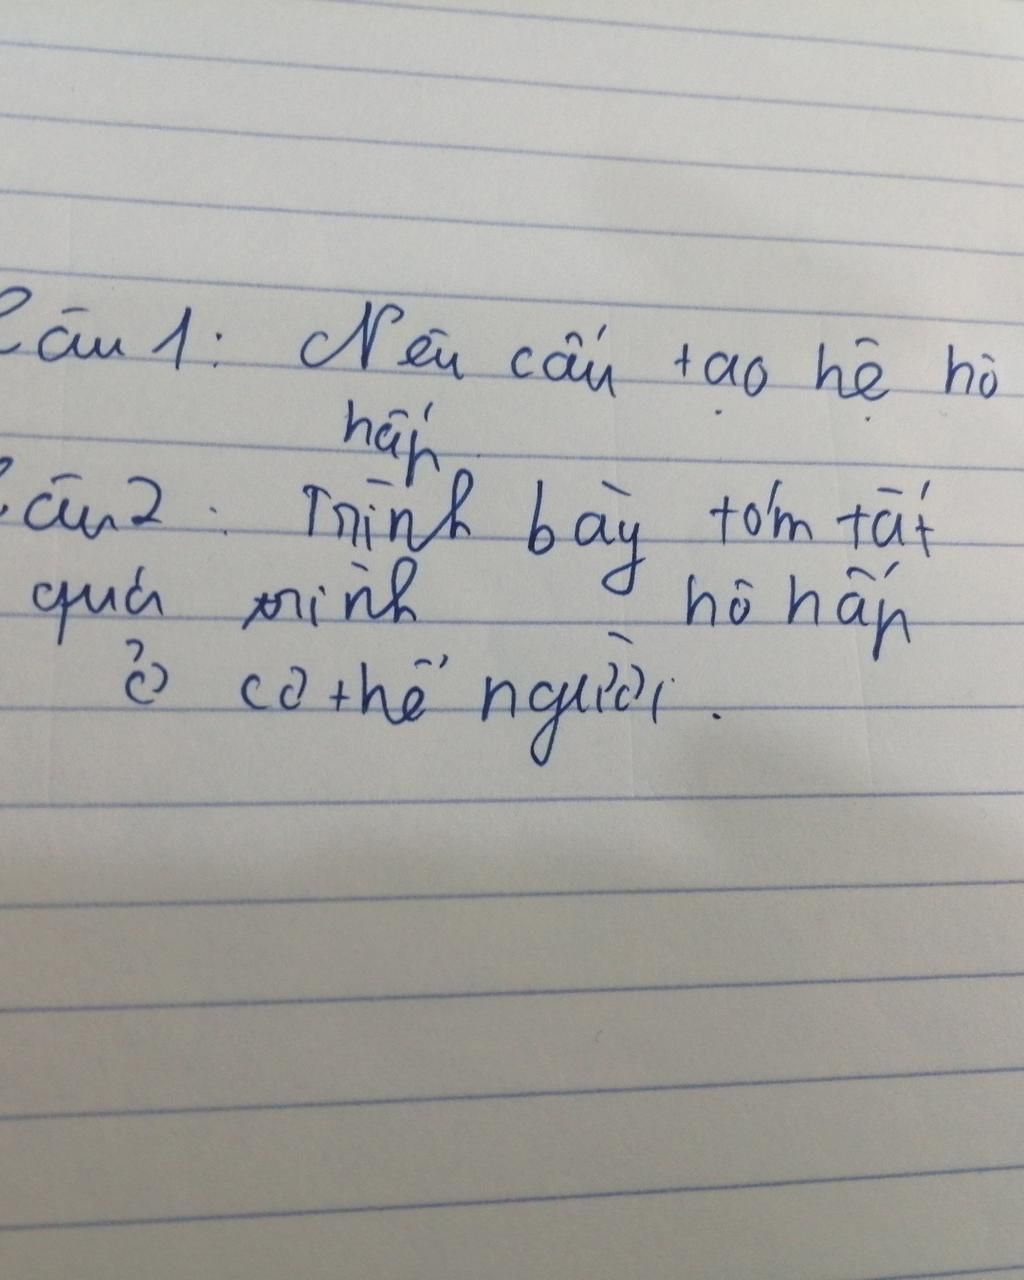 Câu 1: Nêu cấu tạo hệ hô
hấp.
Câu 2: Trình bày tóm tắt
quá trình hô hấp
ở cơ thể người.